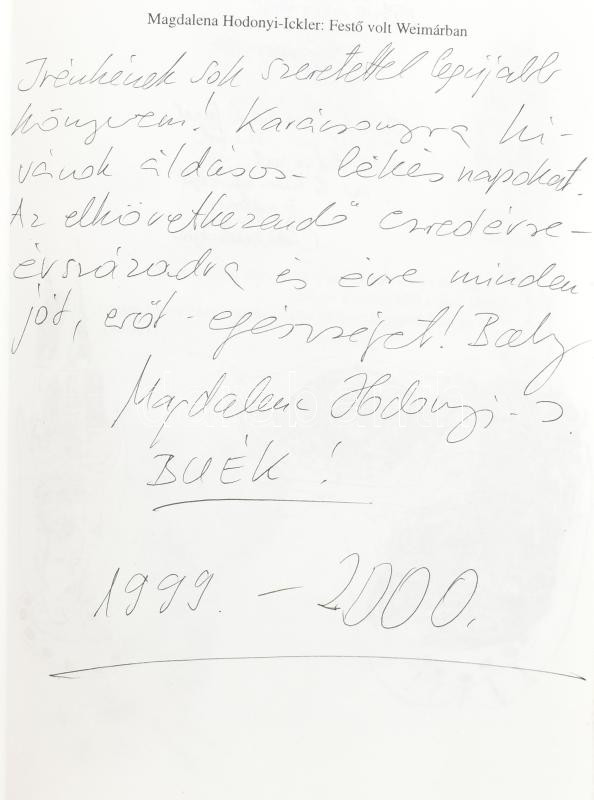 Magdalena Hodonyi-Ickler: Festő volt Weimárban
Irénkének sok szeretettel legújabb
könyvem! Karácsonyra ki-
vánok áldásos - békés napokat.
Az elkövetkezendő ezredévre -
évszázadra és évre minden
jót, erőt - egészséget!
Magdalena Hodonyi - I.
BUÉK!
1999. - 2000.